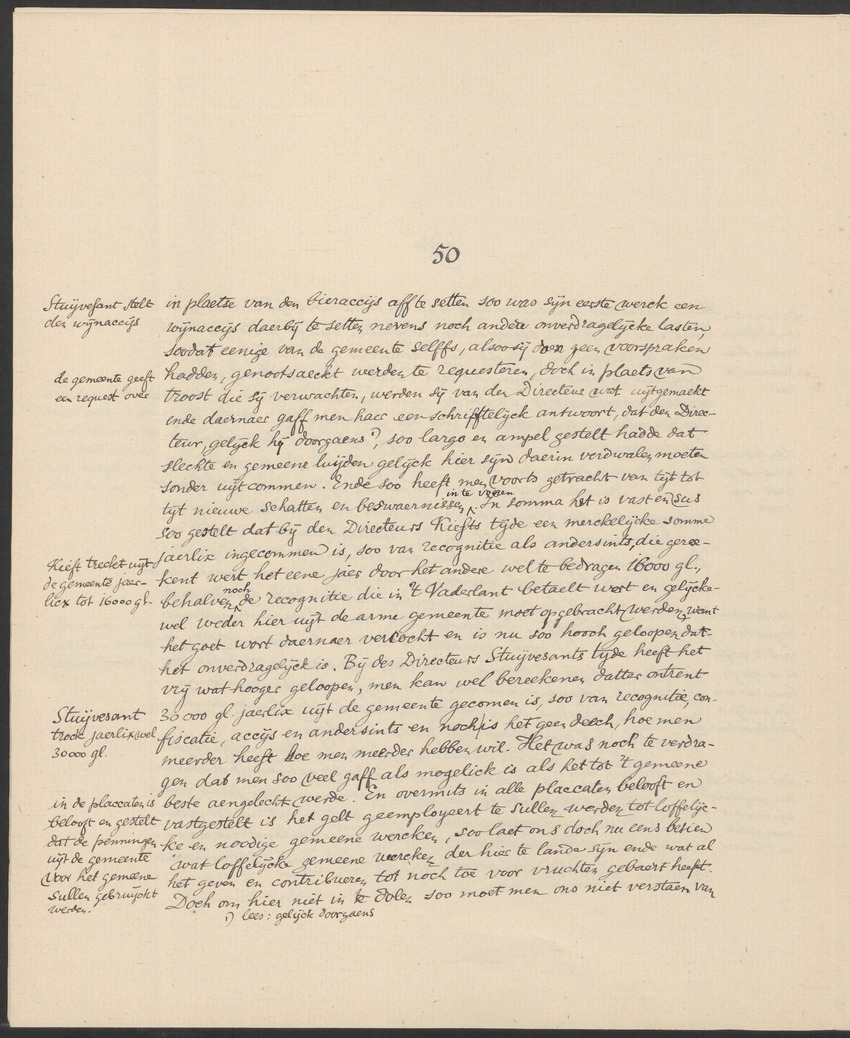 50
Stuijvesant stelt
den wijnaccijs
in plaetse van den bieraccijs aff te setten soo was sijn eerste werck een
wijnaccijs daerbij te setten nevens noch andere onverdragelijcke lasten,
soodat eenige van de gemeente selffs, alsoo sij doen geen voorspraken
de gemeente geeft
een request over
hadden, genootsaeckt werden te requesteren, doch in plaets van
troost die sij verwachten, werden sij van den Directeur wat uijtgemaekt
ende daernaer gaff men haer een schrifftelijck antwoort, dat den Direc-
teur, gelijck hij doorgaens ¹), soo largo en ampel gestelt hadde dat
slechte en gemeene luijden gelijck hier sijn daerin verdwalen moeten
sonder uijtcommen. Ende soo heeft men voorts getracht van tijt tot
tijt nieuwe schatten en beswaernissen in te voeren. In somma het is vast en sus
soo gestelt dat bij den Directeurs Kiefts tijde een merckelijcke somme
Kieft treckt uijt
de gemeente jaer-
licx tot 16000 gl.
jaerlix ingecommen is, soo van recognitie als andersints, die geree-
kent wert het eene jaer door het andere wel te bedragen 16000 gl.,
behalven noch de recognitie die in 't Vaderlant betaelt wort en gelijcke-
wel weder hier uijt de arme gemeente moet opgebracht werden, want
het goet wort daernaer vercocht en is nu soo hooch geloopen dat
het onverdragelijck is. Bij des Directeurs Stuijvesants tijde heeft het
vrij wat hooger geloopen, men kan wel bereekenen datter ontrent
Stuijvesant
trock jaerlix wel
30000 gl.
30000 gl. jaerlix uijt de gemeente gecomen is, soo van recognitie, con-
fiscatie, accijs en andersints en noch is het geen deech, hoe men
meerder heeft hoe men meerder hebben wil. Het was noch te verdra-
gen dat men soo veel gaff als mogelick is als het tot 't gemeene
in de placcaten is
belooft en gestelt
dat de penningen
uijt de gemeente
voor het gemeene
sullen gebruijckt
werden.
beste aengelecht werde. En overmits in alle placcaten belooft en
vastgestelt is het gelt geemployeert te sullen werden tot loffelijc-
ke en noodige gemeene wercken, soo laet ons doch nu eens besien
wat loffelijcke gemeene wercken der hier te lande sijn ende wat al
het geven en contribueren tot noch toe voor vruchten gebaert heeft.
Doch om hier niet in te dolen soo moet men ons niet verstaen van
¹) lees: gelijck doorgaens